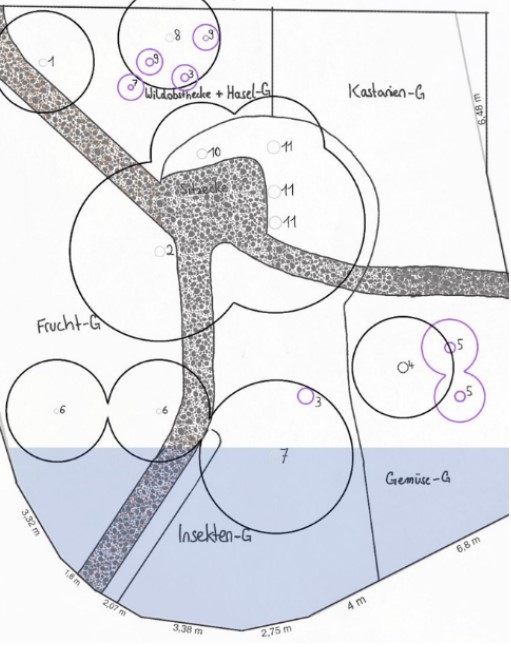 1
8
9
9
3
7
Wildobsthecke + Hasel-G
Kastanien-G
6,48 m
10
11
Sitzecke
11
11
2
Frucht-G
5
4
5
6
6
3
7
Gemüse-G
Insekten-G
3,32 m
1,8 m
2,07
3,38 m
2,75 m
4 m
6,8 m